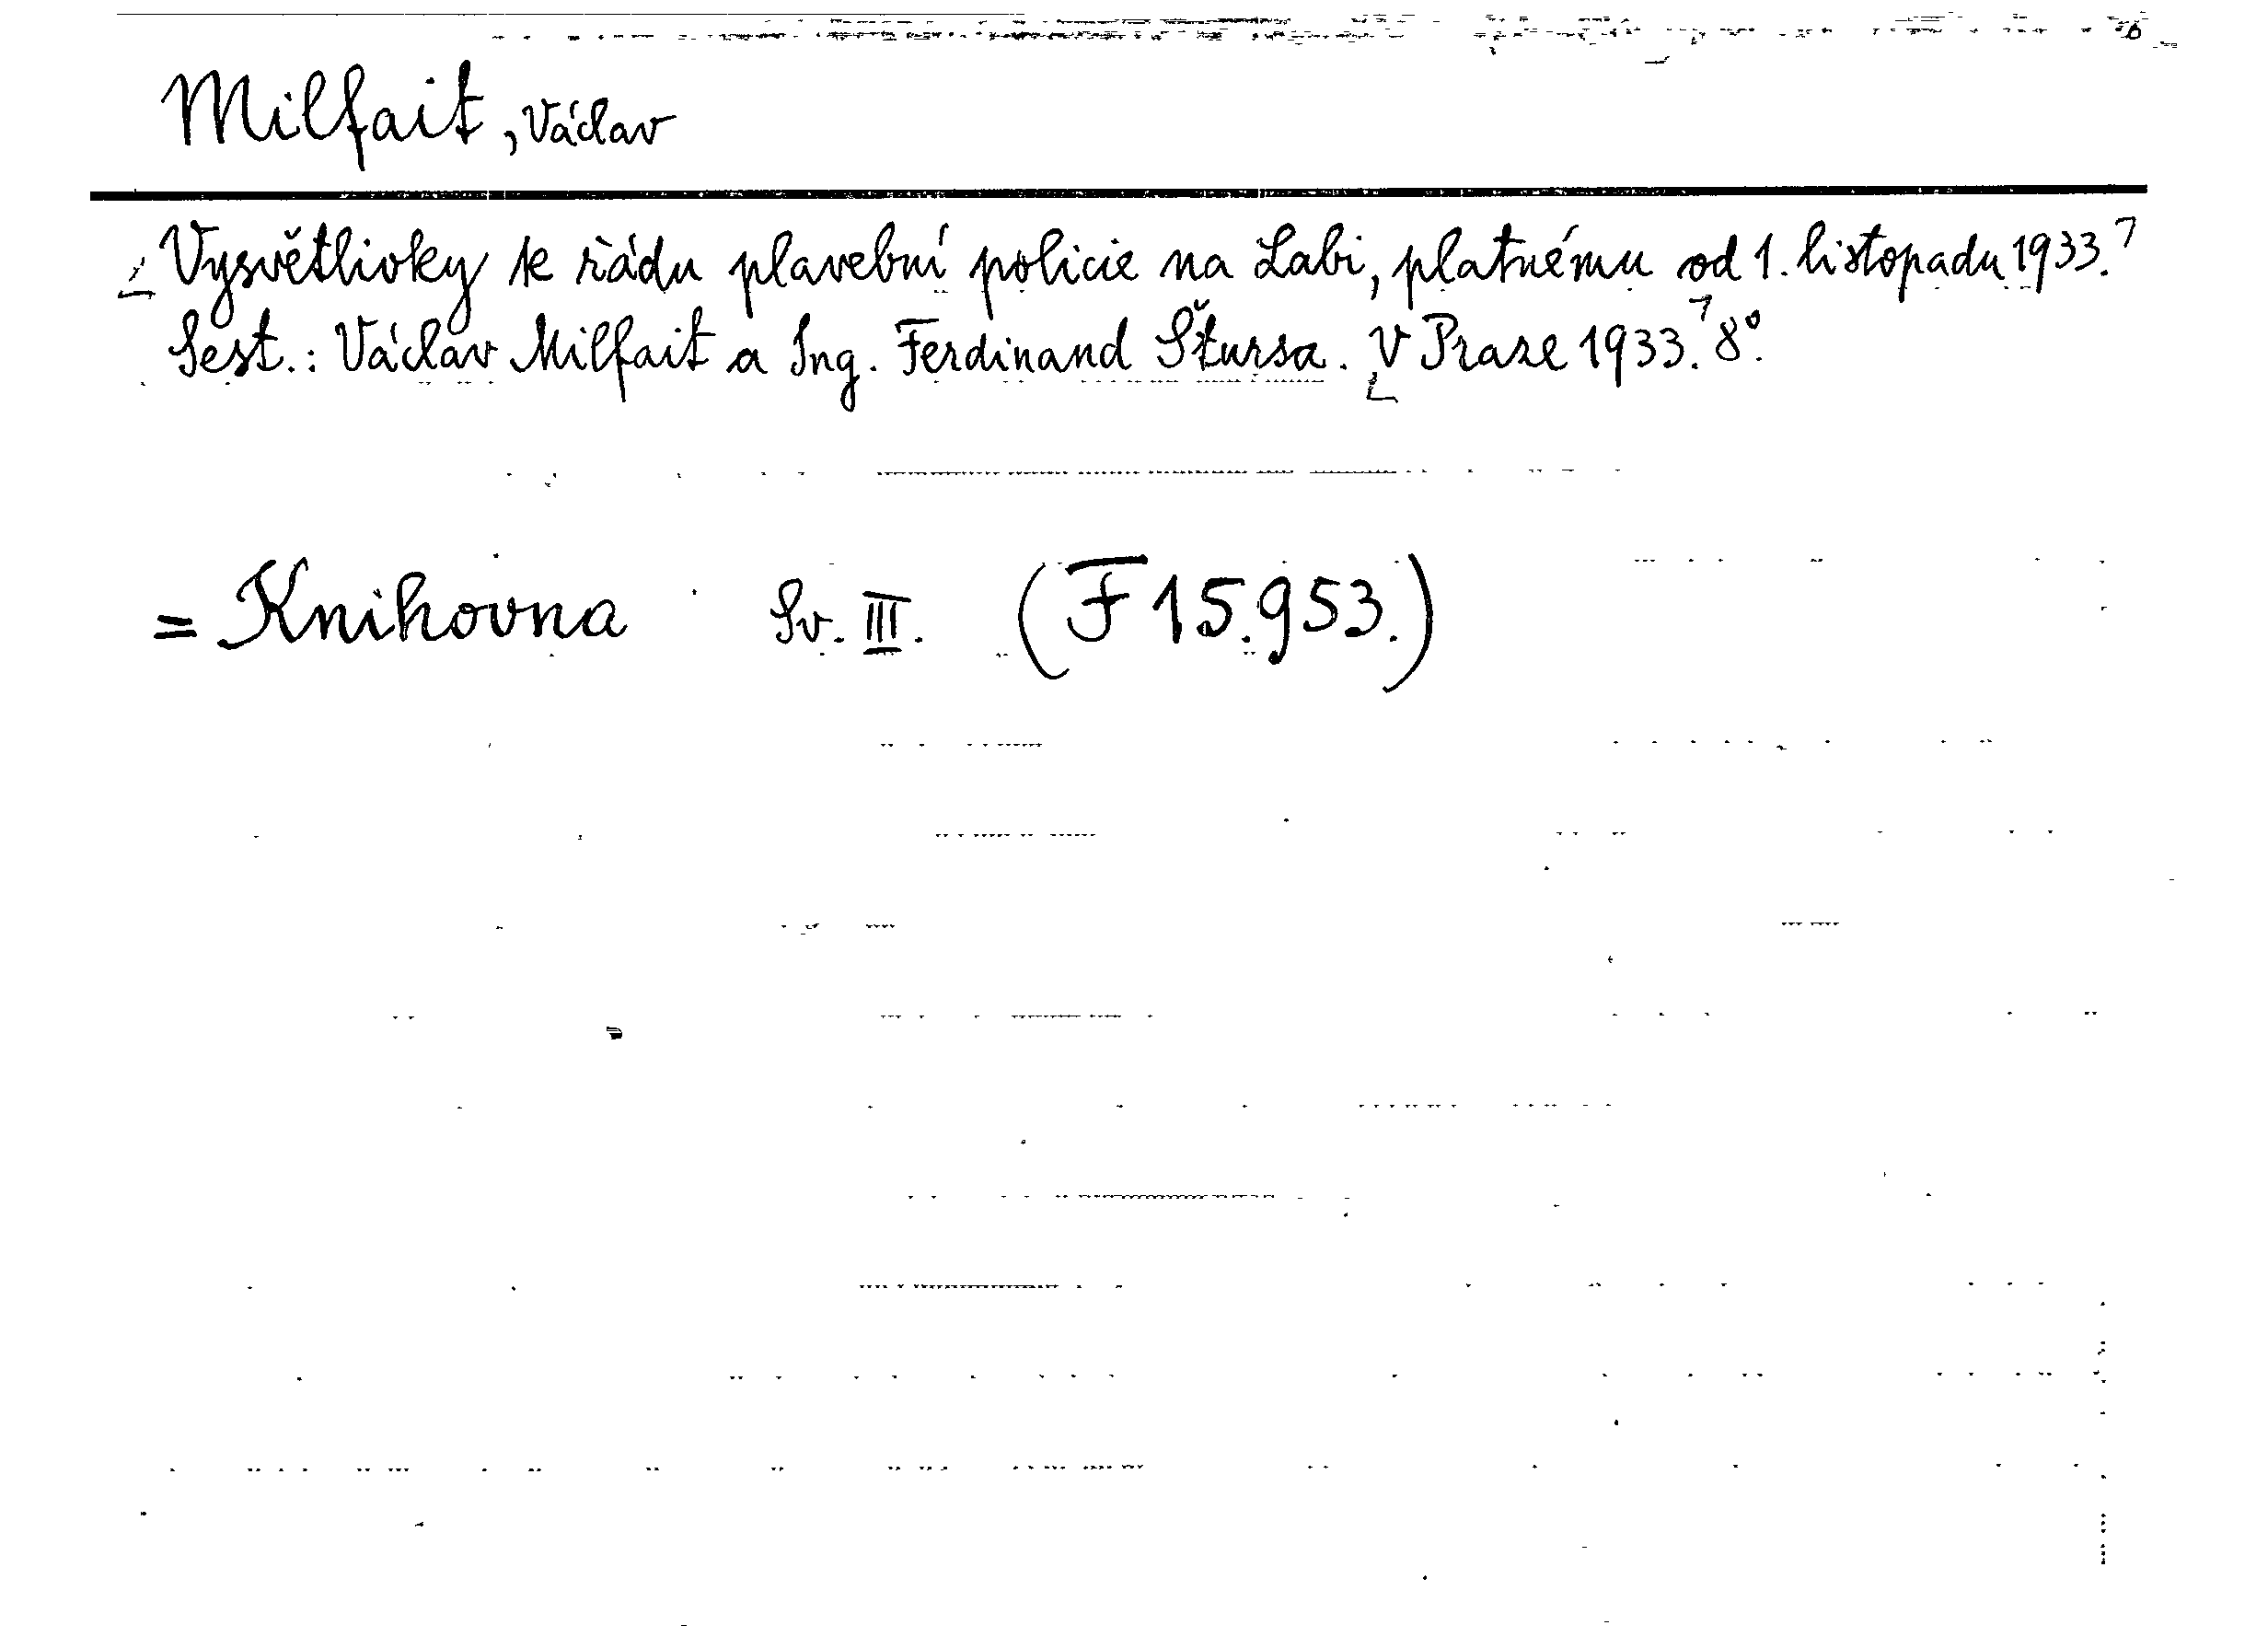 Milfait, Václav
Vysvětlivky k řádu plavební policie na Labi, platnému od 1. listopadu 1933.
Sest.: Václav Milfait a Ing. Ferdinand Štursa. V Praze 1933. 8°.
= Knihovna Sv. III. (F 15.953.)